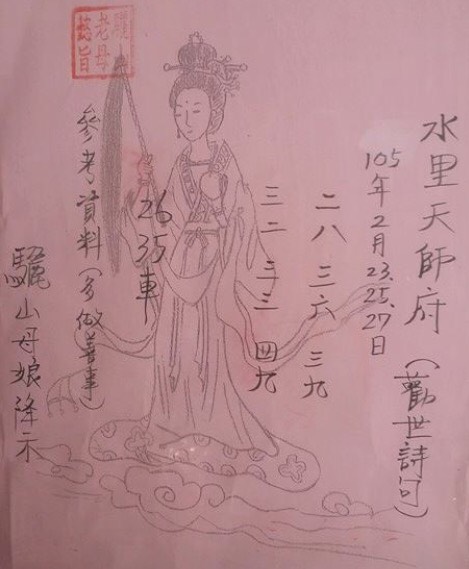 水里天師府(勸世詩句)
105年2月23.25.27日
二八 三六 三九
三二 三三 四九
26 35車
參考資料(多做善事)
驪山母娘降示
驪山
老母
懿旨